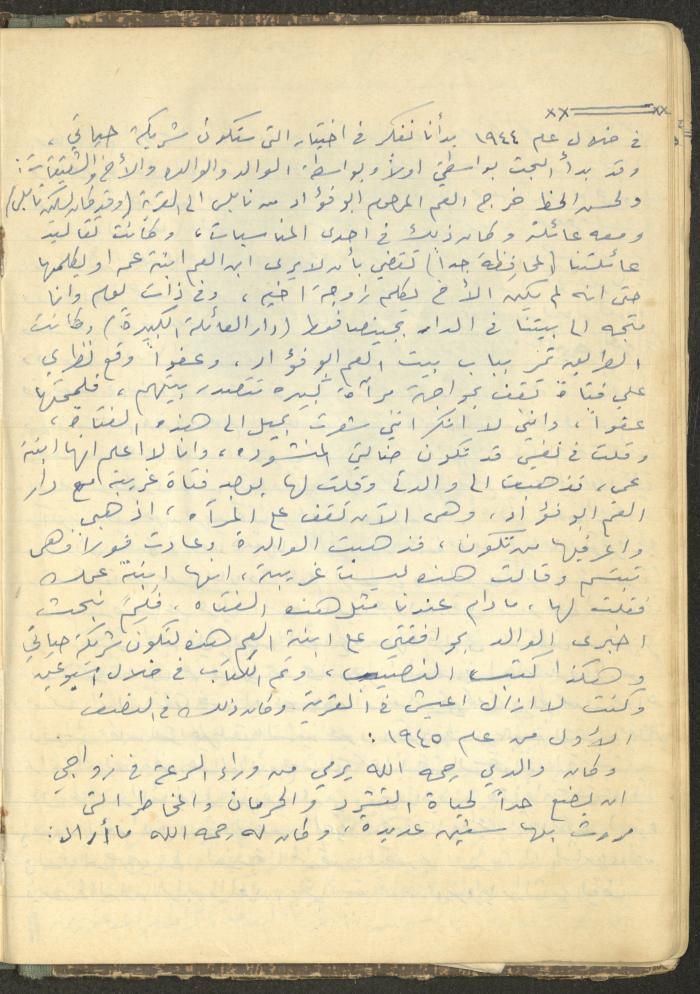 في خلال عام ١٩٤٤ بدأنا نفكر في اختيار التي ستكون شريكة حياتي ،
وقد بدأ البحث بواسطتي اولاً وبواسطة الوالد والوالده والأخ والشقيقات :
ولحسن الحظ خرج العم المرحوم ابو فؤاد من نابلس الى القرية (وقد كان يسكن نابلس)
ومعه عائلته وكان ذلك في احدى المناسبات ، وكانت تقاليد
عائلتنا (المحافظة جداً) تقضي بأن لا يرى ابن العم ابنة عمه او يكلمها
حتى انه لم يكن الأخ يكلم زوجة اخيه ، وفي ذات يوم وانا
متجه الى بيتنا في الدار (دار العائلة الكبيرة) وكانت
الطريق تمر بباب بيت العم ابو فؤاد ، وعفواً وقع نظري
على فتاة تقف بمواجهة مرآة كبيره تتصدر بيتهم ، فلمحتها
عفواً ، وانني لا انكر انني شعرت بميل الى هذه الفتاة ،
وقلت في نفسي قد تكون ضالتي المنشوده ، وانا لا اعلم انها ابنة
عمي ، فذهبت الى والدتي وقلت لها يوجد فتاة غريبة مع دار
العم ابو فؤاد ، وهى الآن تقف على المرآه ، اذهبي
واعرفيها من تكون ، فذهبت الوالدة وعادت فوراً وهى
تبتسم وقالت هذه ليست غريبة ، انها ابنة عمك
فقلت لها ، ما دام عندنا مثل هذه الفتاه ، فلِمَ نبحث
اخبرى الوالد بموافقتي على ابنة العم هذه لتكون شريكة حياتي
وهكذا كتب النصيب ، وتم الكتاب في خلال اسبوعين
وكنت لا ازال اعيش في القرية وكان ذلك في النصف
الأول من عام ١٩٤٥ :
وكان والدي رحمه الله يرمي من وراء السرعة في زواجي
ان يضع حداً لحياة التشرد والحرمان والمخاطر التى
مررت بها سنين عديدة ، وكان له رحمه الله ما أراد :